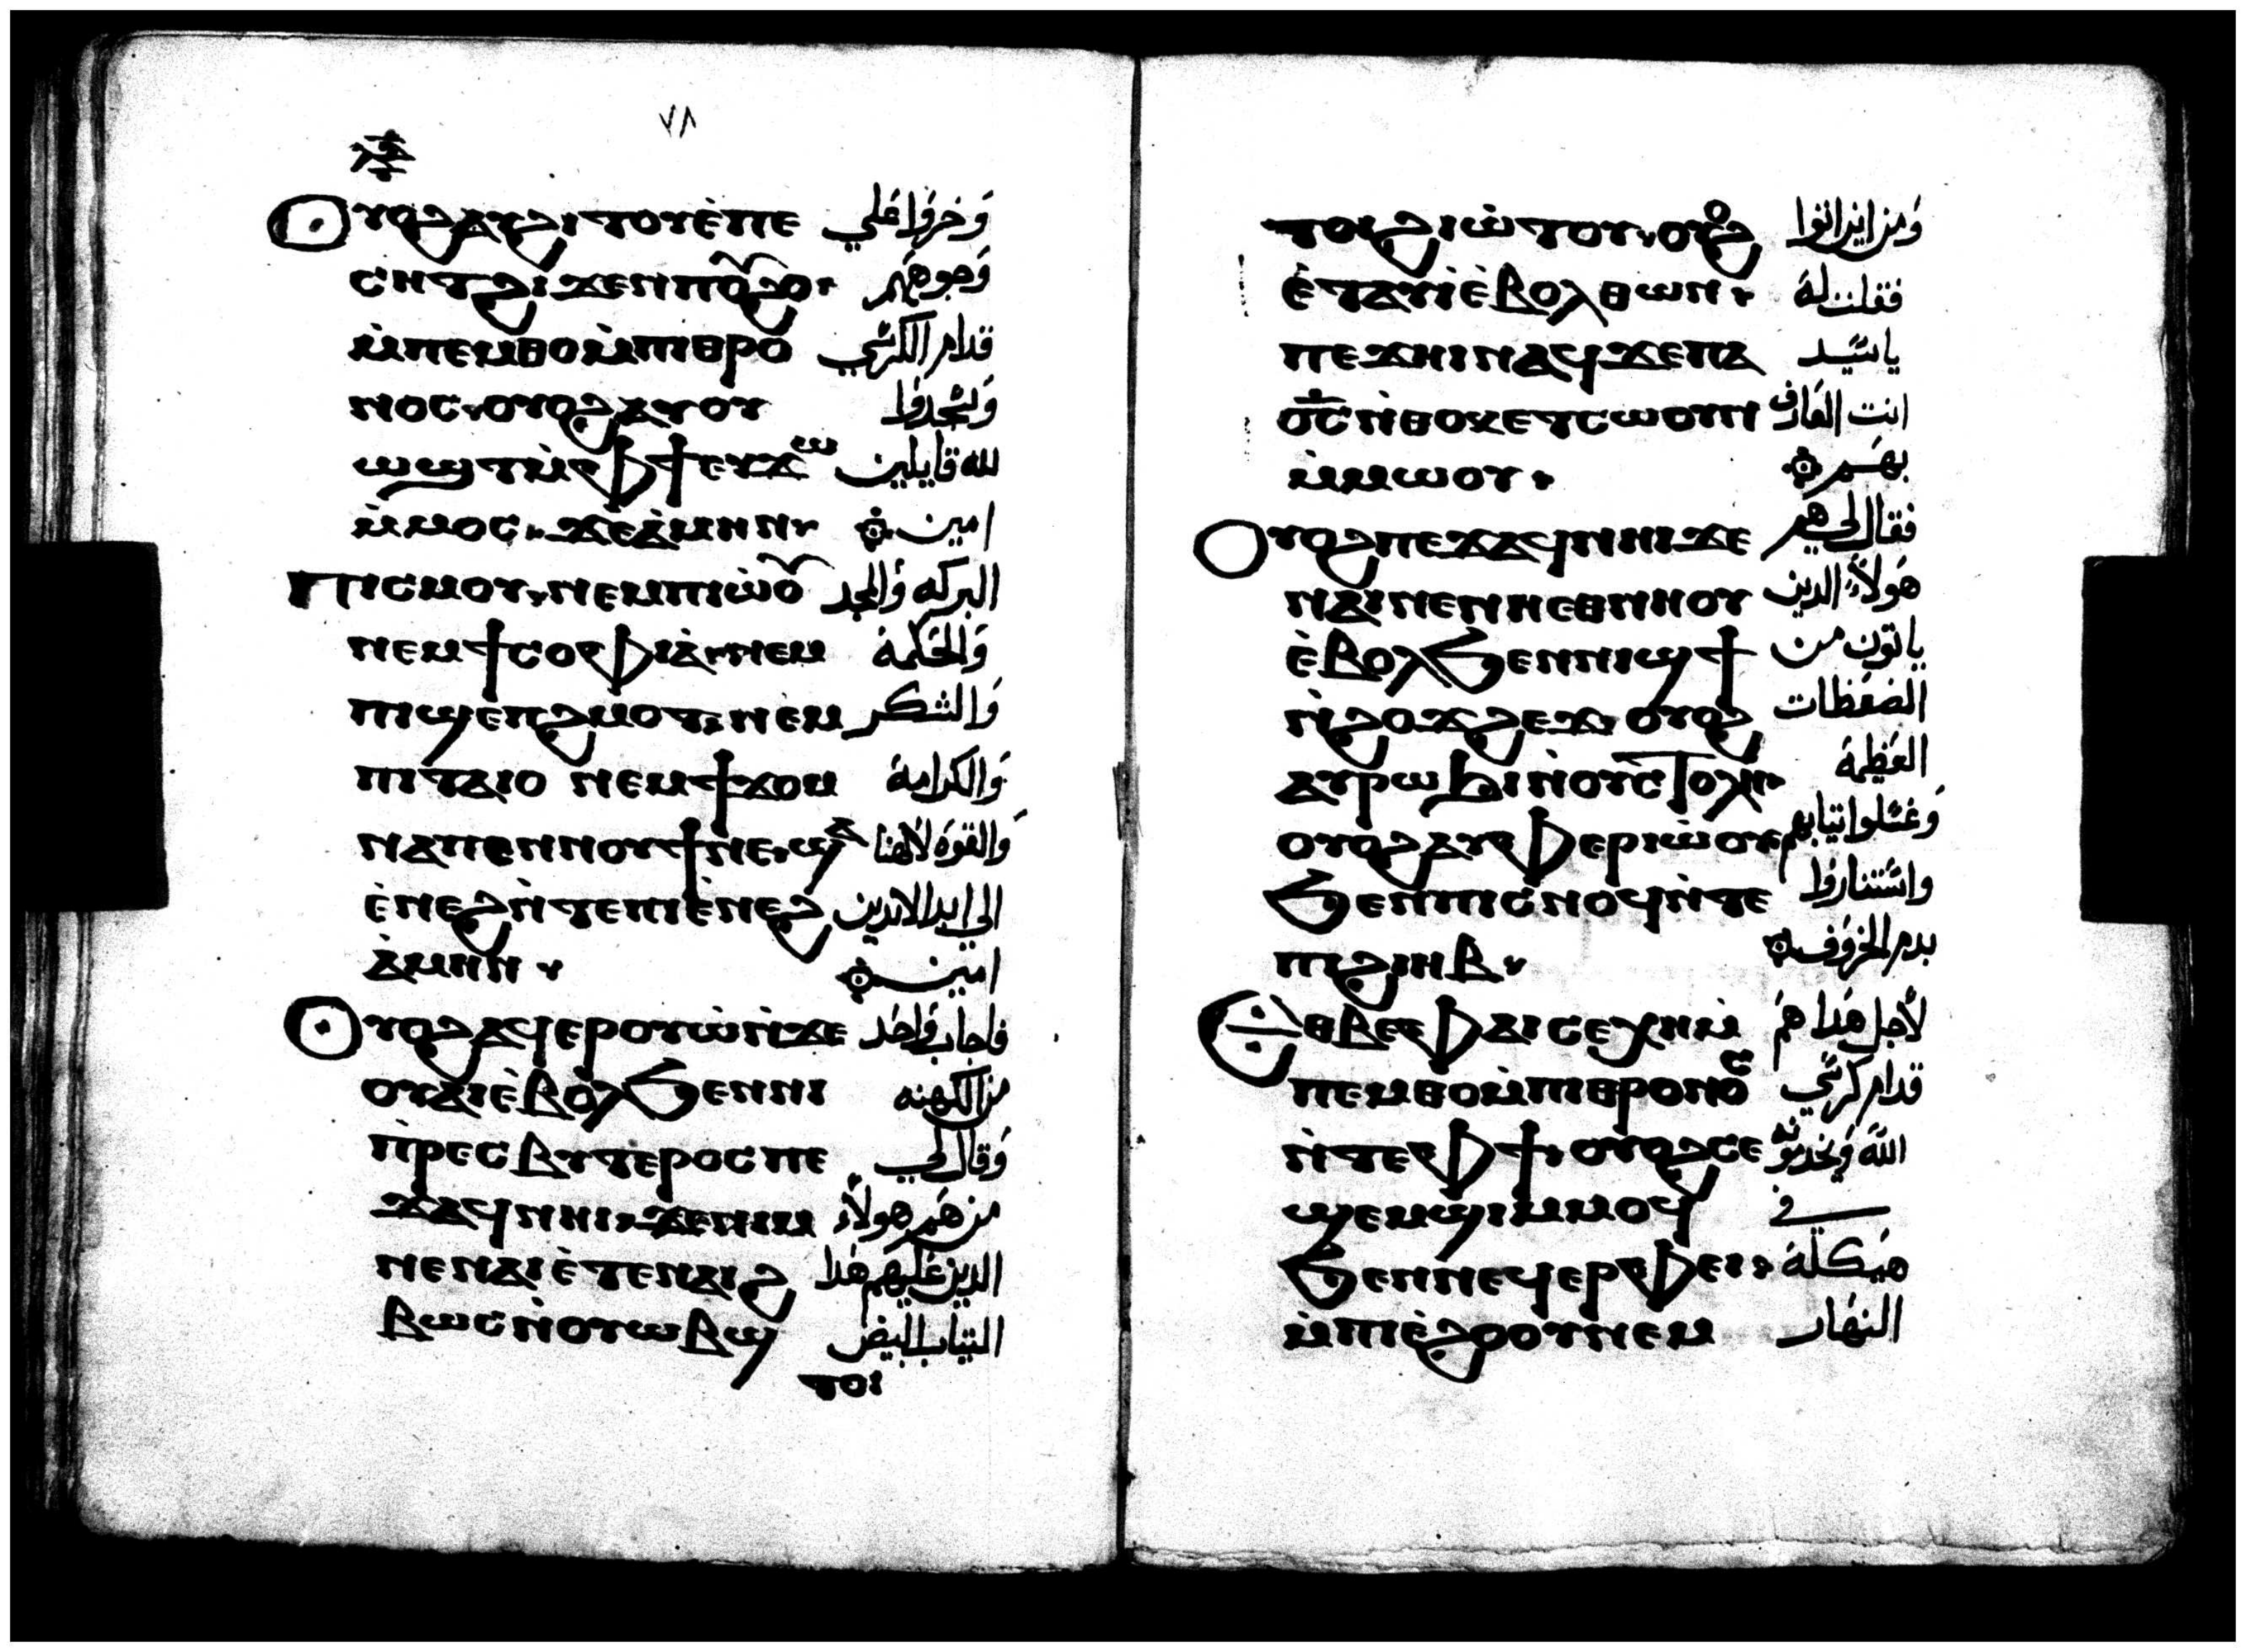 ٧٨
Ⲟⲩⲟϩ ⲁⲩϩⲓⲧⲟⲩ ⲉ̀ⲡⲉ وَخروا علي
ⲥⲏⲧ ϩⲓϫⲉⲛ ⲡⲟⲩϩⲟ⳾ وَجوههم
ⲙ̀ⲡⲉⲙⲑⲟ ⲙ̀ⲡⲓⲑⲣⲟ قدام الكرسي
ⲛⲟⲥ⳾ ⲟⲩⲟϩ ⲁⲩⲟⲩ وَسجدوا
ⲱϣⲧ ⲙ̀ⲫϯ ⲉⲩϫⲱ لله قايلين
ⲙ̀ⲙⲟⲥ⳾ ϫⲉ ⲁ̀ⲙⲏⲛ⳾ امين
Ⲡⲓⲥⲙⲟⲩ⳾ ⲛⲉⲙ ⲡⲓⲱ̀ⲟⲩ البركه وَالمجد
ⲛⲉⲙ ϯⲥⲟⲫⲓⲁ̀⳾ ⲛⲉⲙ وَالحكمة
ⲡⲓϣⲉⲡϩⲙⲟⲧ⳾ ⲛⲉⲙ وَالشكر
ⲡⲓⲧⲁⲓⲟ ⲛⲉⲙ ϯϫⲟⲙ وَالكرامة
ⲛⲁⲡⲉⲛⲛⲟⲩϯ ⲛⲉ⳾ ϣⲁ وَالقوة لالهنا
ⲉ̀ⲛⲉϩ ⲛ̀ⲧⲉ ⲡⲓⲉ̀ⲛⲉϩ الي ابد الابدين
ⲁ̀ⲙⲏⲛ⳾ امين
Ⲟⲩⲟϩ ⲁϥⲉⲣⲟⲩⲱ̀ ⲛ̀ϫⲉ فاجاب وَاحد
ⲟⲩⲁⲓ ⲉ̀ⲃⲟⲗ ϧⲉⲛ ⲛⲓ من الكهنه
ⲡ̀ⲣⲉⲥⲃⲩⲧⲉⲣⲟⲥ ⲡⲉ وَقال لي
ϫⲁϥ ⲛⲏⲓ⳾ ϫⲉ ⲛⲓⲙ من هم هولاء
ⲛⲉ ⲛⲁⲓ ⲉ̀ⲧⲉ ⲛⲁⲓϩ الدين عليهم هدا
ⲃⲱⲥ ⲛ̀ⲟⲩⲱⲃϣ التياب البيض
ⲧⲟⲓ:
ⲧⲟⲓ ϩⲓⲱ̀ⲧⲟⲩ⳾ ⲟⲩⲟϩ وَمن اين اتوا
ⲉ̀ⲧⲁⲩⲓ̀ ⲉ̀ⲃⲟⲗ ⲑⲱⲛ⳾ فقلت له
ⲡⲉϫⲏⲓ ⲛⲁϥ ϫⲉ ⲡⲁ ياسيد
ⲟ̅ⲥ̅ ⲛ̀ⲑⲟⲕ ⲉⲧⲥⲱⲟⲩⲛ انت العارف
ⲙ̀ⲙⲱⲟⲩ⳾ بهم
Ⲟⲩⲟϩ ⲡⲉϫⲁϥ ⲛⲏⲓ ϫⲉ فقال لي هم
ⲛⲁⲓ ⲛⲉ ⲛⲏⲉⲑⲛⲏⲟⲩ هولاء الدين
ⲉ̀ⲃⲟⲗ ϧⲉⲛ ⲛⲓϣϯ ياتون من
ⲛ̀ϩⲟϫϩⲉϫ⳾ ⲟⲩⲟϩ الضغظات
ⲁⲩⲣⲱϧⲓ ⲛ̀ⲟⲩⲥⲧⲟⲗⲏ⳾ العظيمة
ⲟⲩⲟϩ ⲁⲩⲫⲉⲣⲓⲱ̀ⲟⲩ وَغسلوا تيابهم
ϧⲉⲛ ⲡⲓⲥⲛⲟϥ ⲛ̀ⲧⲉ واستناروا
ⲡⲓϩⲓⲏⲃ⳾ بدم الخروف
Ⲉⲑⲃⲉ ⲫⲁⲓ ⲥⲉⲭⲏ ⲙ̀ لاجل هدا هم
ⲡⲉⲙⲑⲟ ⲙ̀ⲡⲓⲑⲣⲟⲛⲟⲥ قدام كرسي
ⲛ̀ⲧⲉ ⲫϯ⳾ ⲟⲩⲟϩ ⲥⲉ الله وَيخدمونه
ϣⲉⲙϣⲓ ⲙ̀ⲙⲟϥ في
ϧⲉⲛ ⲡⲉϥⲉⲣⲫⲉⲓ⳾ هيكله
ⲙ̀ⲡⲓⲉ̀ϩⲟⲟⲩ ⲛⲉⲙ النهار